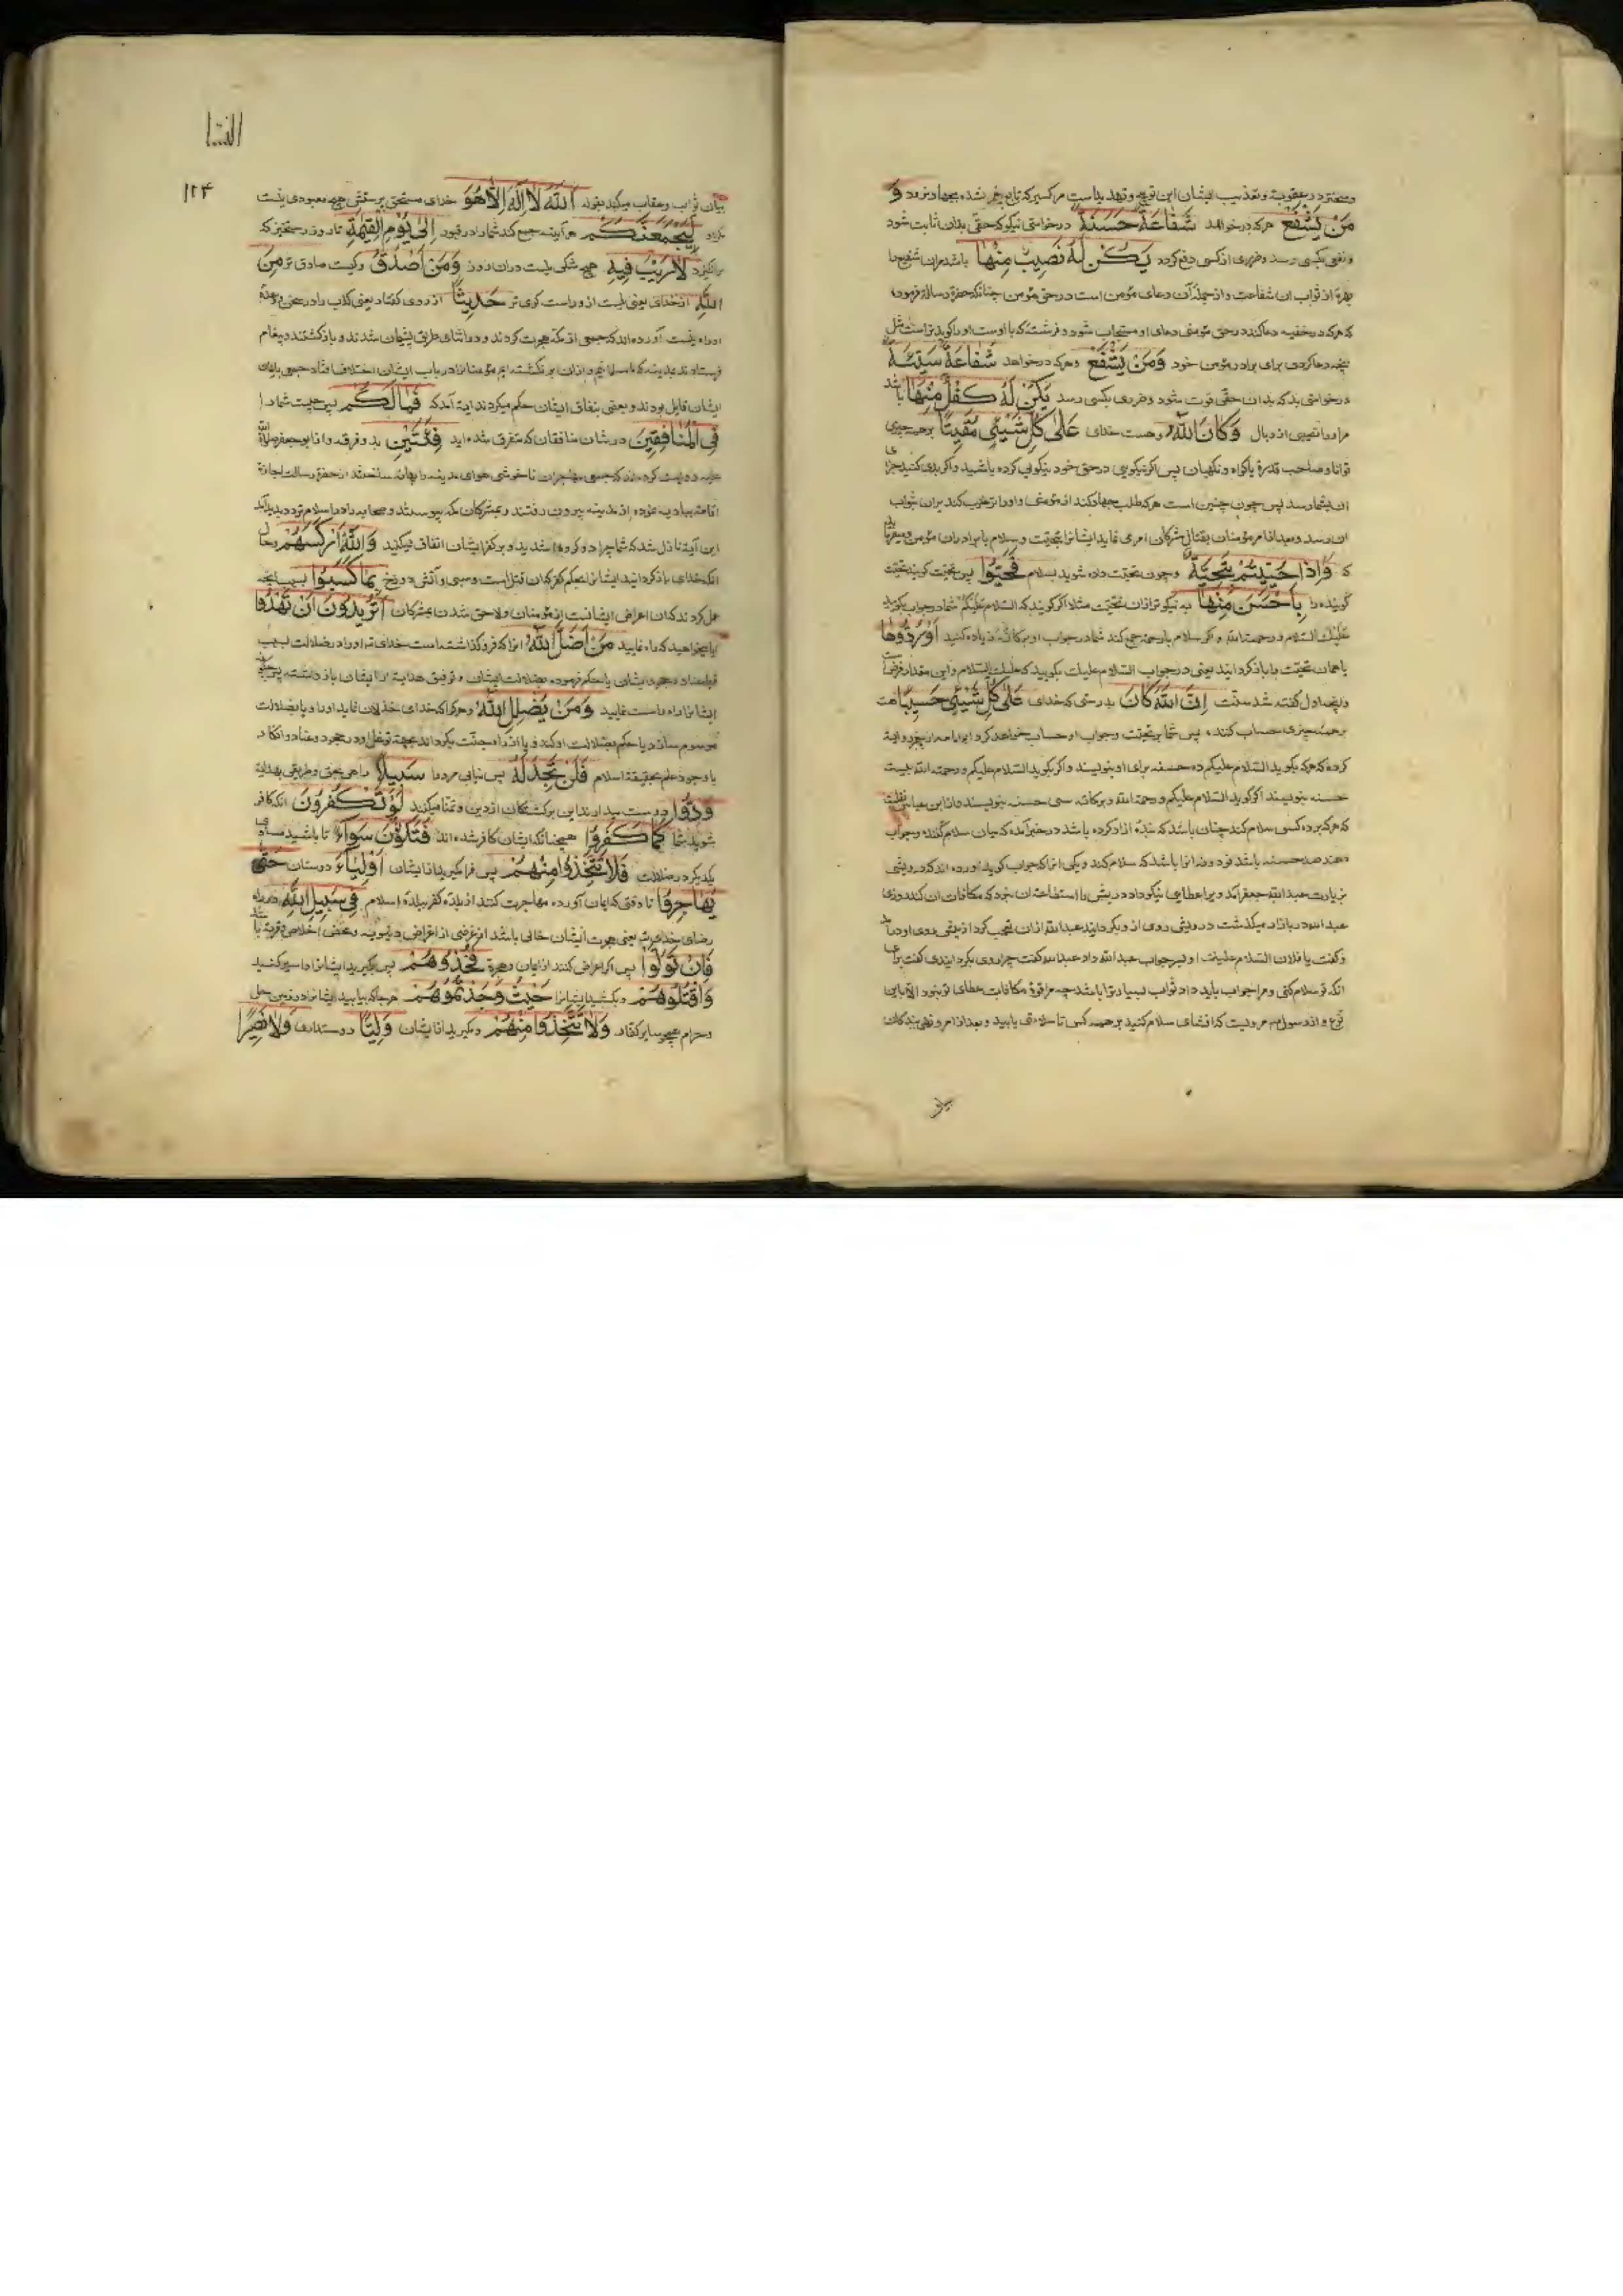 و سخترند در عقوبت و تعذیب ایشان این
مَنْ يَشْفَعْ هرکه درخواهد شَفاعَةً حَسَنَةً درخواستی نیکو که حقی بدان ثابت شود
و نفعی بکسی رسد و ضرری از کسی دفع کردد يَكُنْ لَهُ نَصيبٌ مِنْها باشد مران شفیع را
بهرهٔ از ثواب ان شفاعت و از جمله آن دعای مؤمن است در حق مؤمن چنانکه حضرة رسالة فرموده
که هرکه در خفیه دعا کند در حق مؤمنی دعای او مستجاب شود و فرشته که با اوست او را کوید تراست مثل
آنچه دعا کردی برای برادر مؤمن خود وَمَنْ يَشْفَعْ و هرکه درخواهد شَفاعَةً سَيِّئَةً
درخواستی بد که بدان حقی فوت شود و ضرری بکسی رسد يَكُنْ لَهُ كِفْلٌ مِنْها باشد
مر او را نصیبی از وبال وَكانَ اللهُ و هست خدای عَلىٰ كُلِّ شَيْئٍ مُقيتًا بر همه چیزی
توانا و صاحب قدرة یا کواه و نکهبان پس اکر نیکویی در حق خود نیکویی کرده باشید و اکر بدی کنید جزای
ان بشما رسد پس چون چنین است هرکه طلب جهاد کند از مؤمنی و او را ترغیب کند بران ثواب
ان رسد و بعد از امر مؤمنان بقتال مشرکان امر می فرماید ایشانرا بتحیت و سلام با برادران مؤمن و میفرماید
که وَاِذا حُيّيتُمْ بِتَحِيَّةٍ و چون تحیت داده شوید بسلام فَحَيُّوا پس تحیت کویید تحیت
کوینده را بِاَحْسَنَ مِنْها به نیکوتر از ان تحیت مثلا اکر کوید که السلام علیکم شما در جواب بکویید
علیک السلام و رحمة الله و اکر سلام با رحمة جمع کند شما در جواب او برکاته زیاده کنید اَوْ رُدُّوها
یا همان تحیت را باز کردانید یعنی در جواب السلام علیک بکویید که علیک السلام و این مقدار فرض است
و آنچه اول کفته شد سنت اِنَّ اللهَ كانَ بدرستی که خدای عَلىٰ كُلِّ شَيْئٍ حَسيبًا هست
بر همه چیزی حساب کننده پس شما بر تحیت و جواب او حساب خواهد کرد ابو امامه از پیغمبر روایة
کرده که هرکه بکوید السلام علیکم ده حسنه برای او بنویسند و اکر بکوید السلام علیکم و رحمة الله بیست
حسنه بنویسند اکر کوید السلام علیکم و رحمة الله و برکاته سی حسنه بنویسند و از ابن عباس نقلست
که هرکه بر ده کس سلام کند چنان باشد که بندهٔ ازاد کرده باشد و در خبر آمده که میان سلام کننده و جواب
دهنده صد حسنه باشد نود و نه انرا باشد که سلام کند و یکی انرا که جواب کوید آورده اند که درویشی
بزیارت عبدالله جعفر آمد ویرا عطایی نیکو داد درویش را استطاعت ان نبود که مکافات ان کند روزی
عبدالله در بازار میکذشت درویش روی از و بکردانید عبدالله از ان تعجب کرد از پیش روی او درآمد
و کفت یا فلان السلام علیک او نیز جواب عبدالله داد عبدالله کفت چرا روی بکردانیدی کفت برای
انکه تو سلام کنی و مرا جواب باید داد ثواب بسیار ترا باشد چه مرا قوة مکافات عطای تو نبود الا باین
نوع و از رسول هم مرویست که افشای سلام کنید بر همه کس تا سلامتی یابید و بعد از امر و نهی بندکان
بیان
النسا
۱۲۴
بیان ثواب و عقاب میکند بقوله اَللهُ لا اِلٰهَ اِلاّ هُوَ خدای مستحق پرستش هیچ معبودی نیست
مکر او لَيَجْمَعَنَّكُمْ هر آینه جمع کند شما را در قبور اِلىٰ يَوْمِ الْقِيٰمَةِ تا روز رستخیز که
برانکیزد لا رَيْبَ فيهِ هیچ شکی نیست دران روز وَمَنْ اَصْدَقُ و کیست صادق تر مِنَ
اللهِ از خدای یعنی نیست از و راست کوی تر حَديثًا از روی کفتار یعنی کذب را در سخن و وعده
او راه نیست آورده اند که جمعی از مکه هجرت کردند و در اثنای طریق پشیمان شدند و باز کشتند و پیغام
فرستادند بمدینه که ما مسلمانیم و ازان برنکشته ایم مؤمنانرا در باب ایشان اختلاف افتاد جمعی بایمان
ایشان قایل بودند و بعضی بنفاق ایشان حکم میکردند ایة آمد که فَما لَكُمْ پس چیست شما را
فِي الْمُنافِقينَ در شان منافقان که متفرق شده اید فِئَتَيْنِ بدو فرقه و از ابو جعفر صلواة الله
علیه روایت کرده اند که جمعی مهاجران ناخوشی هوای مدینه را بهانه ساختند از حضرة رسالت اجازة
اقامت ببادیه نموده از مدینه بیرون رفتند و بمشرکان مکه پیوستند و صحابه در اسلام تردد پدید آمد
این آیة نازل شد که شما چرا دو کروه شدید و بر کفر ایشان اتفاق نمیکنید وَاللهُ اَرْكَسَهُمْ و حال
انکه خدای باز کردانید ایشانرا بحکم کفر که ان قتل است و سبی و آتش دوزخ بِما كَسَبُوا بسبب آنچه
عمل کردند که ان اعراض ایشانست از مؤمنان و لاحق شدن بمشرکان اَتُريدُونَ اَنْ تَهْدُوا
ایا میخواهید که راه نمایید مَنْ اَضَلَّ اللهُ انرا که فرو کذاشته است خدای تعالی او را در ضلالت بسبب
ایشانرا راه راست نمایید وَمَنْ يُضْلِلِ اللهُ و هرکرا که خدای خذلان نماید او را و یا بضلالت
موسوم سازد یا حکم بضلالت او کند و یا از راه جنت بکرداند بجهة توغل او در جحود و عناد و انکار
با وجود علم بحقیقة اسلام فَلَنْ تَجِدَ لَهُ پس نیابی مر او را سَبيلاً راهی بحق و طریقی بهدایة
وَدُّوا دوست میدارند این برکشتکان از دین و تمنا میکنند لَوْ تَكْفُرُونَ انکه کافر
شوید شما كَما كَفَرُوا همچنانکه ایشان کافر شده اند فَتَكُونُونَ سَوآءً تا باشید مساوی
یکدیکر در ضلالت فَلا تَتَّخِذُوا مِنْهُمْ پس فرا مکیرید از ایشان اَوْلِيٰآءَ دوستان حَتّىٰ
يُهاجِرُوا تا وقتی که ایمان آورده مهاجرت کنند از بلدهٔ کفر ببلدهٔ اسلام في سَبيلِ اللهِ در راه
رضای خدای یعنی هجرت ایشان خالی باشد از غرضی از اغراض دنیویه و محض اخلاص و قربة باشد
فَاِنْ تَوَلَّوْا پس اکر اعراض کنند از ایمان و هجرة فَخُذُوهُمْ پس بکیرید ایشانرا و اسیر کنید
وَاقْتُلُوهُمْ و بکشید ایشانرا حَيْثُ وَجَدْتُمُوهُمْ هر جا که بیابید ایشانرا در زمین حل
و حرام همچو سایر کفار وَلا تَتَّخِذُوا مِنْهُمْ و مکیرید از ایشان وَلِيًّا دوستداری وَلا نَصيرًا